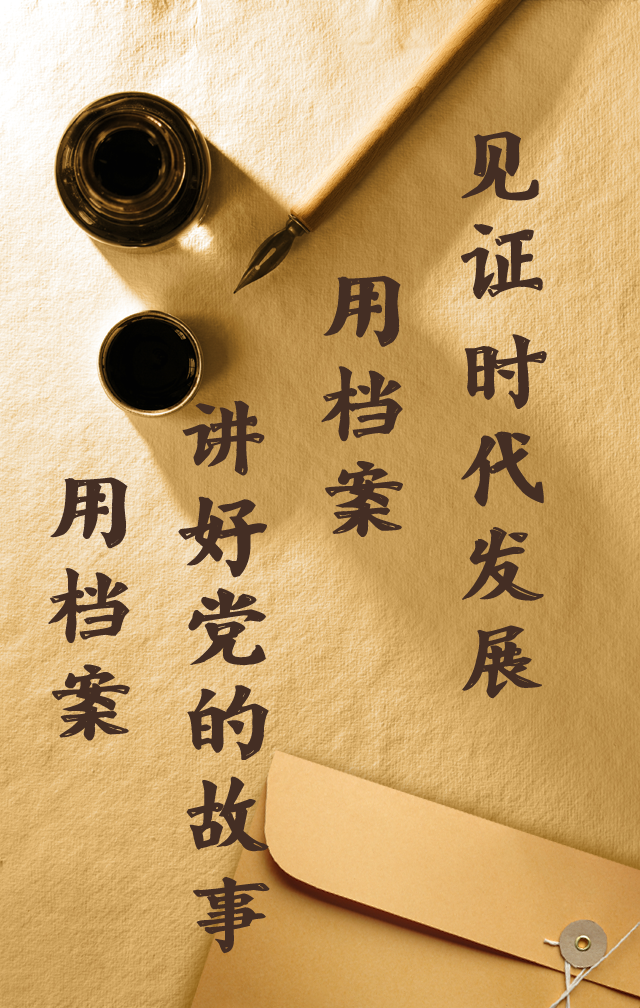 用档案
讲好党的故事
用档案
见证时代发展